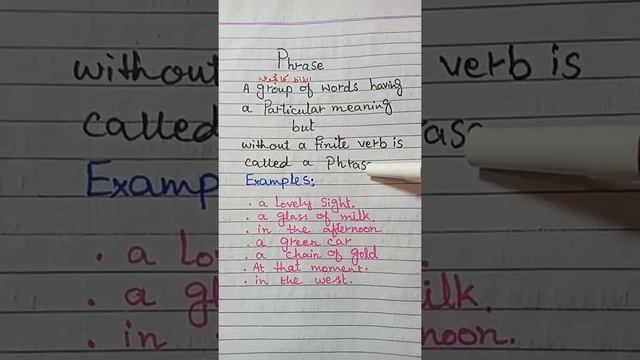 Phrase
A group of words having
a Particular meaning
but
without a finite verb is
called a Phras
Examples:
. a Lovely Sight.
. a glass of milk.
. in the afternoon.
. a green car
. a chain of gold
. At that moment.
. in the west.